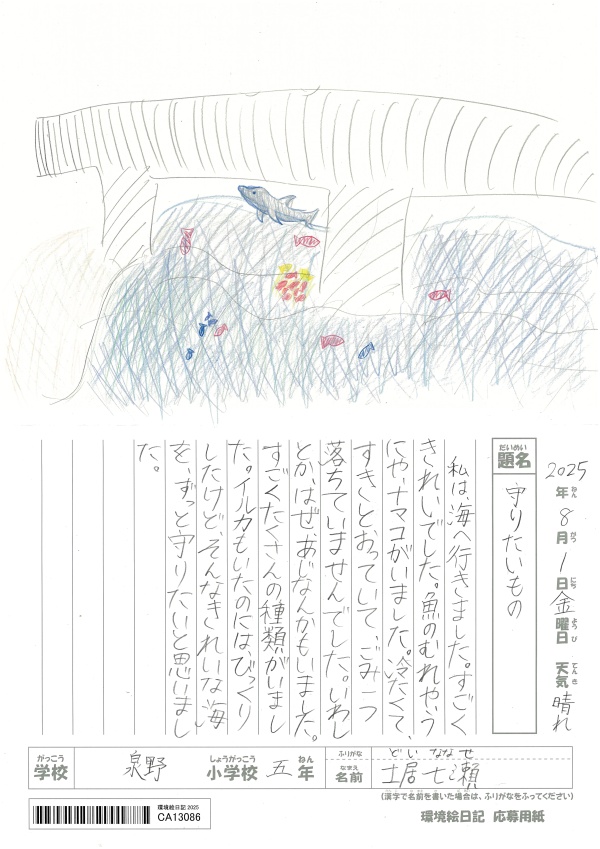 2025年8月1日金曜日 天気晴れ
ねん がつ にち ようび てんき
だいめい
題名
守りたいもの
私は、海へ行きました。すごく
きれいでした。魚のむれや、う
にや、ナマコがいました。冷たくて、
すきとおっていて、ごみ一つ
落ちていませんでした。いわし
とか、はぜ、あじなんかもいました。
すごくたくさんの種類がいまし
た。イルカもいたのにはびっくり
したけど、そんなきれいな海
を、ずっと守りたいと思いまし
た。
がっこう しょうがっこう ねん
学校 泉野 小学校 五年
ふりがな どい ななせ
なまえ
名前 土居 七瀬
(漢字で名前を書いた場合は、ふりがなをふってください)
環境絵日記 2025
CA13086
環境絵日記 応募用紙